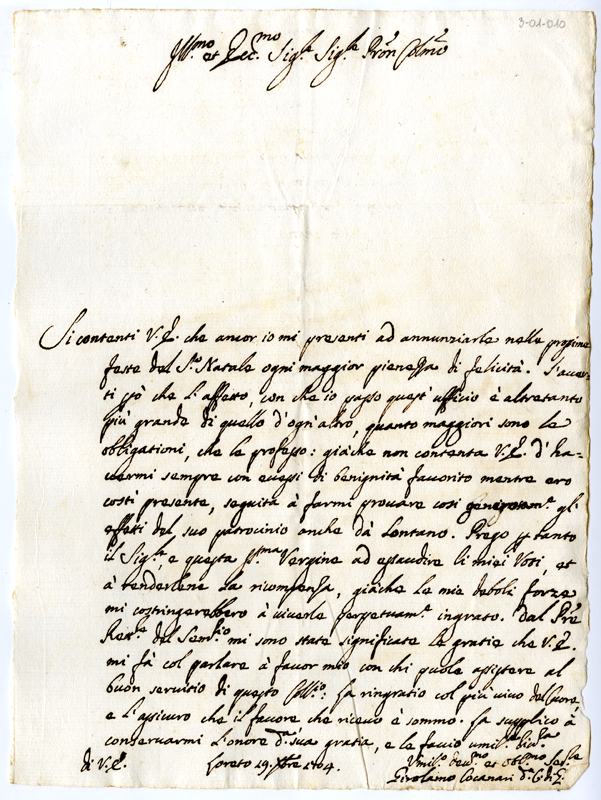 3-01-010
Ill.mo et Ecc.mo Sig.r Sig.re Pron Colmo
Si contenti V. E. che ancor io mi presenti ad annunziarle nelle prossime
feste del S.to Natale ogni maggior pienezza di felicità. S'accer-
ti però che l'affetto, con che io passo quest'ufficio è altretanto
più grande di quello d'ogn'altro, quanto maggiori sono le
obligationi, che le professo: giàche non contenta V. E. d'ha-
vermi sempre con eccessi di benignità favorito mentre ero
costì presente, seguita à farmi provare così gli
effetti del suo patrocinio anche dà lontano. Prego tanto
il Sig.re, e questa S.ma Vergine ad esaudire li miei Voti, et
à renderlene la ricompensa, giàche le mie deboli forze
mi costringerebbero à viverle perpetuam.te ingrato. Dal Pre
del mi sono state significate le gratie che V. E.
mi fà col parlare à favor mio con chi puole assistere al
buon servitio di questo Coll.io: la ringratio col più vivo del Cuore,
e l'assicuro che il favore che ricevo è sommo. La supplico à
conservarmi l'onore d.a sua gratia, e le faccio umil.ma
di V. E. Loreto 19. Xbre 1704. Umil.o dev.mo et obl.mo
Girolamo Cocanari